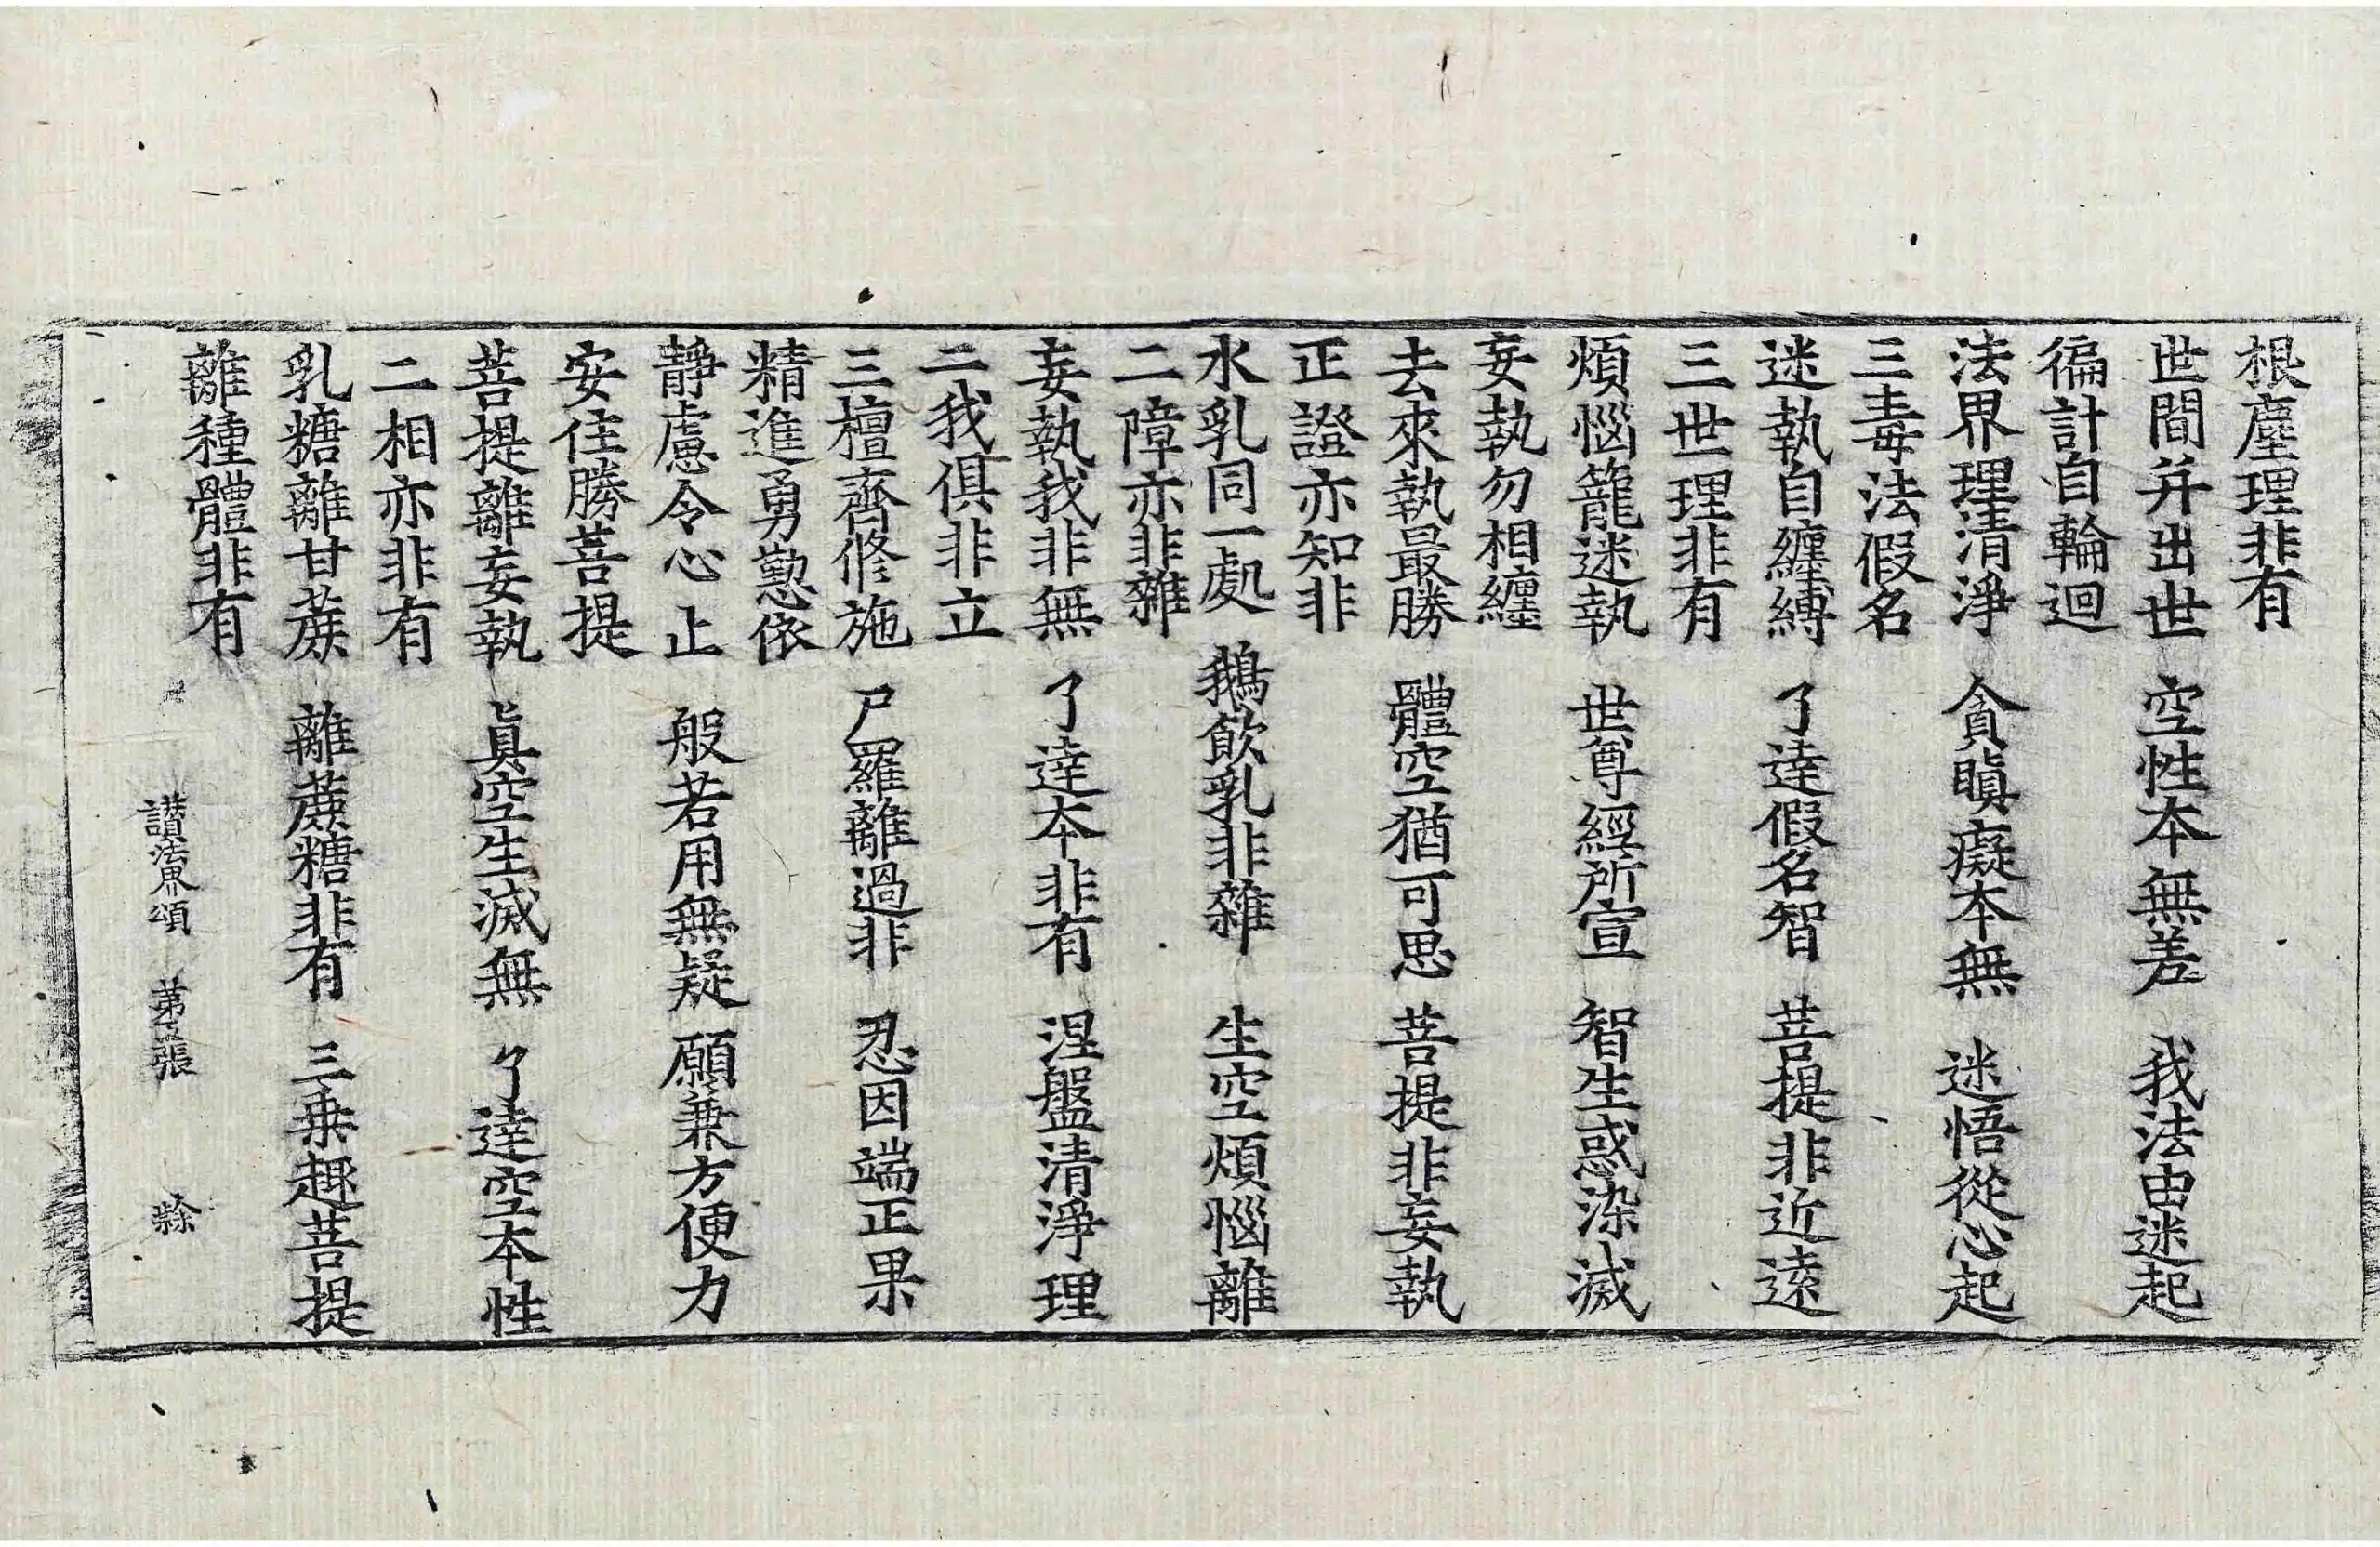 根塵理非有
世間并出世 空性本無差 我法由迷起
徧計自輪迴
法界理清淨 貪瞋癡本無 迷悟從心起
三毒法假名
迷執自纏縛 了達假名智 菩提非近遠
三世理非有
煩惱籠迷執 世尊經所宣 智生惑染滅
妄執勿相纏
去來執最勝 體空猶可思 菩提非妄執
正證亦知非
水乳同一處 鵝飲乳非雜 生空煩惱離
二障亦非雜
妄執我非無 了達本非有 涅盤清淨理
二我俱非立
三檀齊修施 尸羅離過非 忍因端正果
精進勇懃依
靜慮令心止 般若用無疑 願兼方便力
安住勝菩提
菩提離妄執 眞空生滅無 了達空本性
二相亦非有
乳糖離甘蔗 離蔗糖非有 三乘趣菩提
離種體非有
讃法界頌 第五張